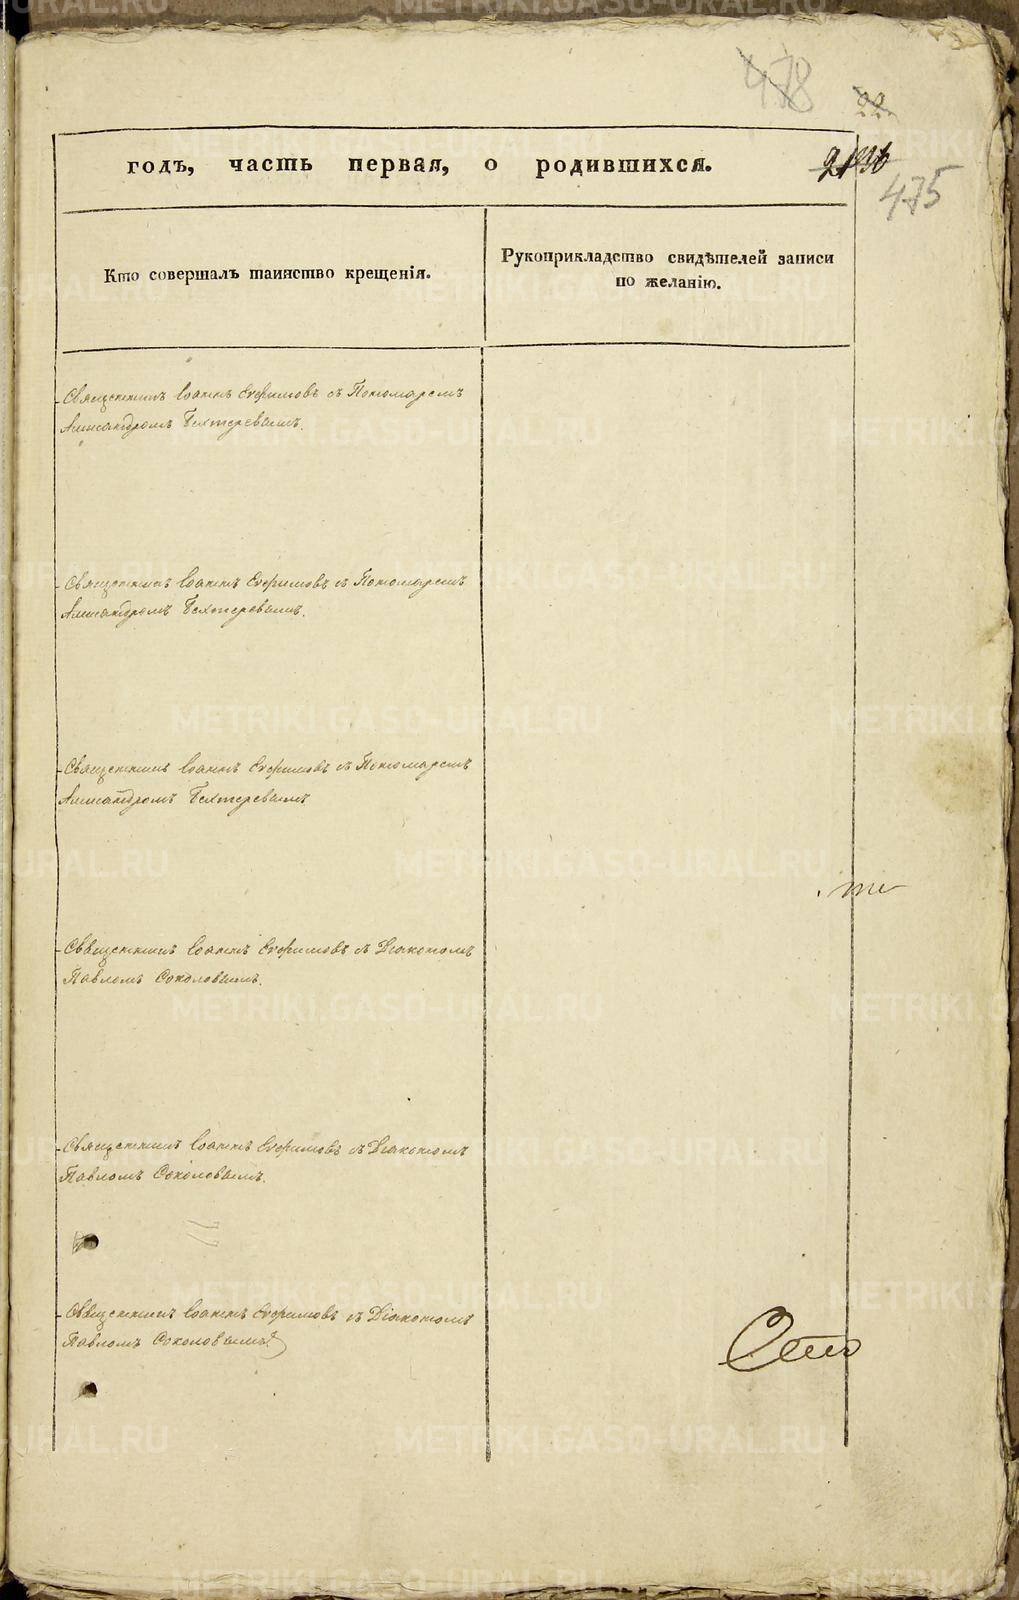 478
22
годъ, часть первая, о родившихся.
475
Кто совершалъ таинство крещенія.
Рукоприкладство свидѣтелей записи
по желанію.
Священникъ Іоаннъ Ефимовъ съ Пономаремъ
Александромъ Бехтеревымъ.
Священникъ Іоаннъ Ефимовъ съ Пономаремъ
Александромъ Бехтеревымъ.
Священникъ Іоаннъ Ефимовъ съ Пономаремъ
Александромъ Бехтеревымъ
Священникъ Іоаннъ Ефимовъ съ Діакономъ
Павломъ Соколовымъ.
Священникъ Іоаннъ Ефимовъ съ Діакономъ
Павломъ Соколовымъ.
Священникъ Іоаннъ Ефимовъ съ Діакономъ
Павломъ Соколовымъ.
METRIKI.GASO-URAL.RU